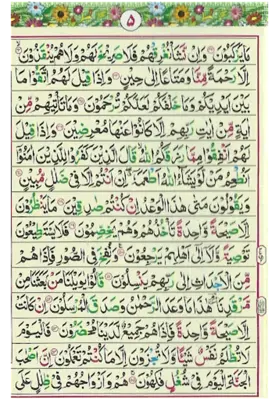 ۵
مَا يَرْكَبُوْنَ ۝ وَاِنْ نَّشَاْ نُغْرِقْهُمْ فَلَا صَرِيْخَ لَهُمْ وَلَا هُمْ يُنْقَذُوْنَ ۝
اِلَّا رَحْمَةً مِّنَّا وَمَتَاعًا اِلٰى حِيْنٍ ۝ وَاِذَا قِيْلَ لَهُمُ اتَّقُوْا مَا
بَيْنَ اَيْدِيْكُمْ وَمَا خَلْفَكُمْ لَعَلَّكُمْ تُرْحَمُوْنَ ۝ وَمَا تَاْتِيْهِمْ مِّنْ
اٰيَةٍ مِّنْ اٰيٰتِ رَبِّهِمْ اِلَّا كَانُوْا عَنْهَا مُعْرِضِيْنَ ۝ وَاِذَا قِيْلَ
لَهُمْ اَنْفِقُوْا مِمَّا رَزَقَكُمُ اللّٰهُ قَالَ الَّذِيْنَ كَفَرُوْا لِلَّذِيْنَ اٰمَنُوْٓا
اَنُطْعِمُ مَنْ لَّوْ يَشَآءُ اللّٰهُ اَطْعَمَهٗٓ اِنْ اَنْتُمْ اِلَّا فِيْ ضَلٰلٍ مُّبِيْنٍ ۝
وَيَقُوْلُوْنَ مَتٰى هٰذَا الْوَعْدُ اِنْ كُنْتُمْ صٰدِقِيْنَ ۝ مَا يَنْظُرُوْنَ
اِلَّا صَيْحَةً وَّاحِدَةً تَاْخُذُهُمْ وَهُمْ يَخِصِّمُوْنَ ۝ فَلَا يَسْتَطِيْعُوْنَ
تَوْصِيَةً وَّلَآ اِلٰٓى اَهْلِهِمْ يَرْجِعُوْنَ ۝ وَنُفِخَ فِي الصُّوْرِ فَاِذَا هُمْ
مِّنَ الْاَجْدَاثِ اِلٰى رَبِّهِمْ يَنْسِلُوْنَ ۝ قَالُوْا يٰوَيْلَنَا مَنْۢ بَعَثَنَا مِنْ
مَّرْقَدِنَا هٰذَا مَا وَعَدَ الرَّحْمٰنُ وَصَدَقَ الْمُرْسَلُوْنَ ۝ اِنْ كَانَتْ
اِلَّا صَيْحَةً وَّاحِدَةً فَاِذَا هُمْ جَمِيْعٌ لَّدَيْنَا مُحْضَرُوْنَ ۝ فَالْيَوْمَ
لَا تُظْلَمُ نَفْسٌ شَيْئًا وَّلَا تُجْزَوْنَ اِلَّا مَا كُنْتُمْ تَعْمَلُوْنَ ۝ اِنَّ اَصْحٰبَ
الْجَنَّةِ الْيَوْمَ فِيْ شُغُلٍ فٰكِهُوْنَ ۝ هُمْ وَاَزْوَاجُهُمْ فِيْ ظِلٰلٍ عَلَى